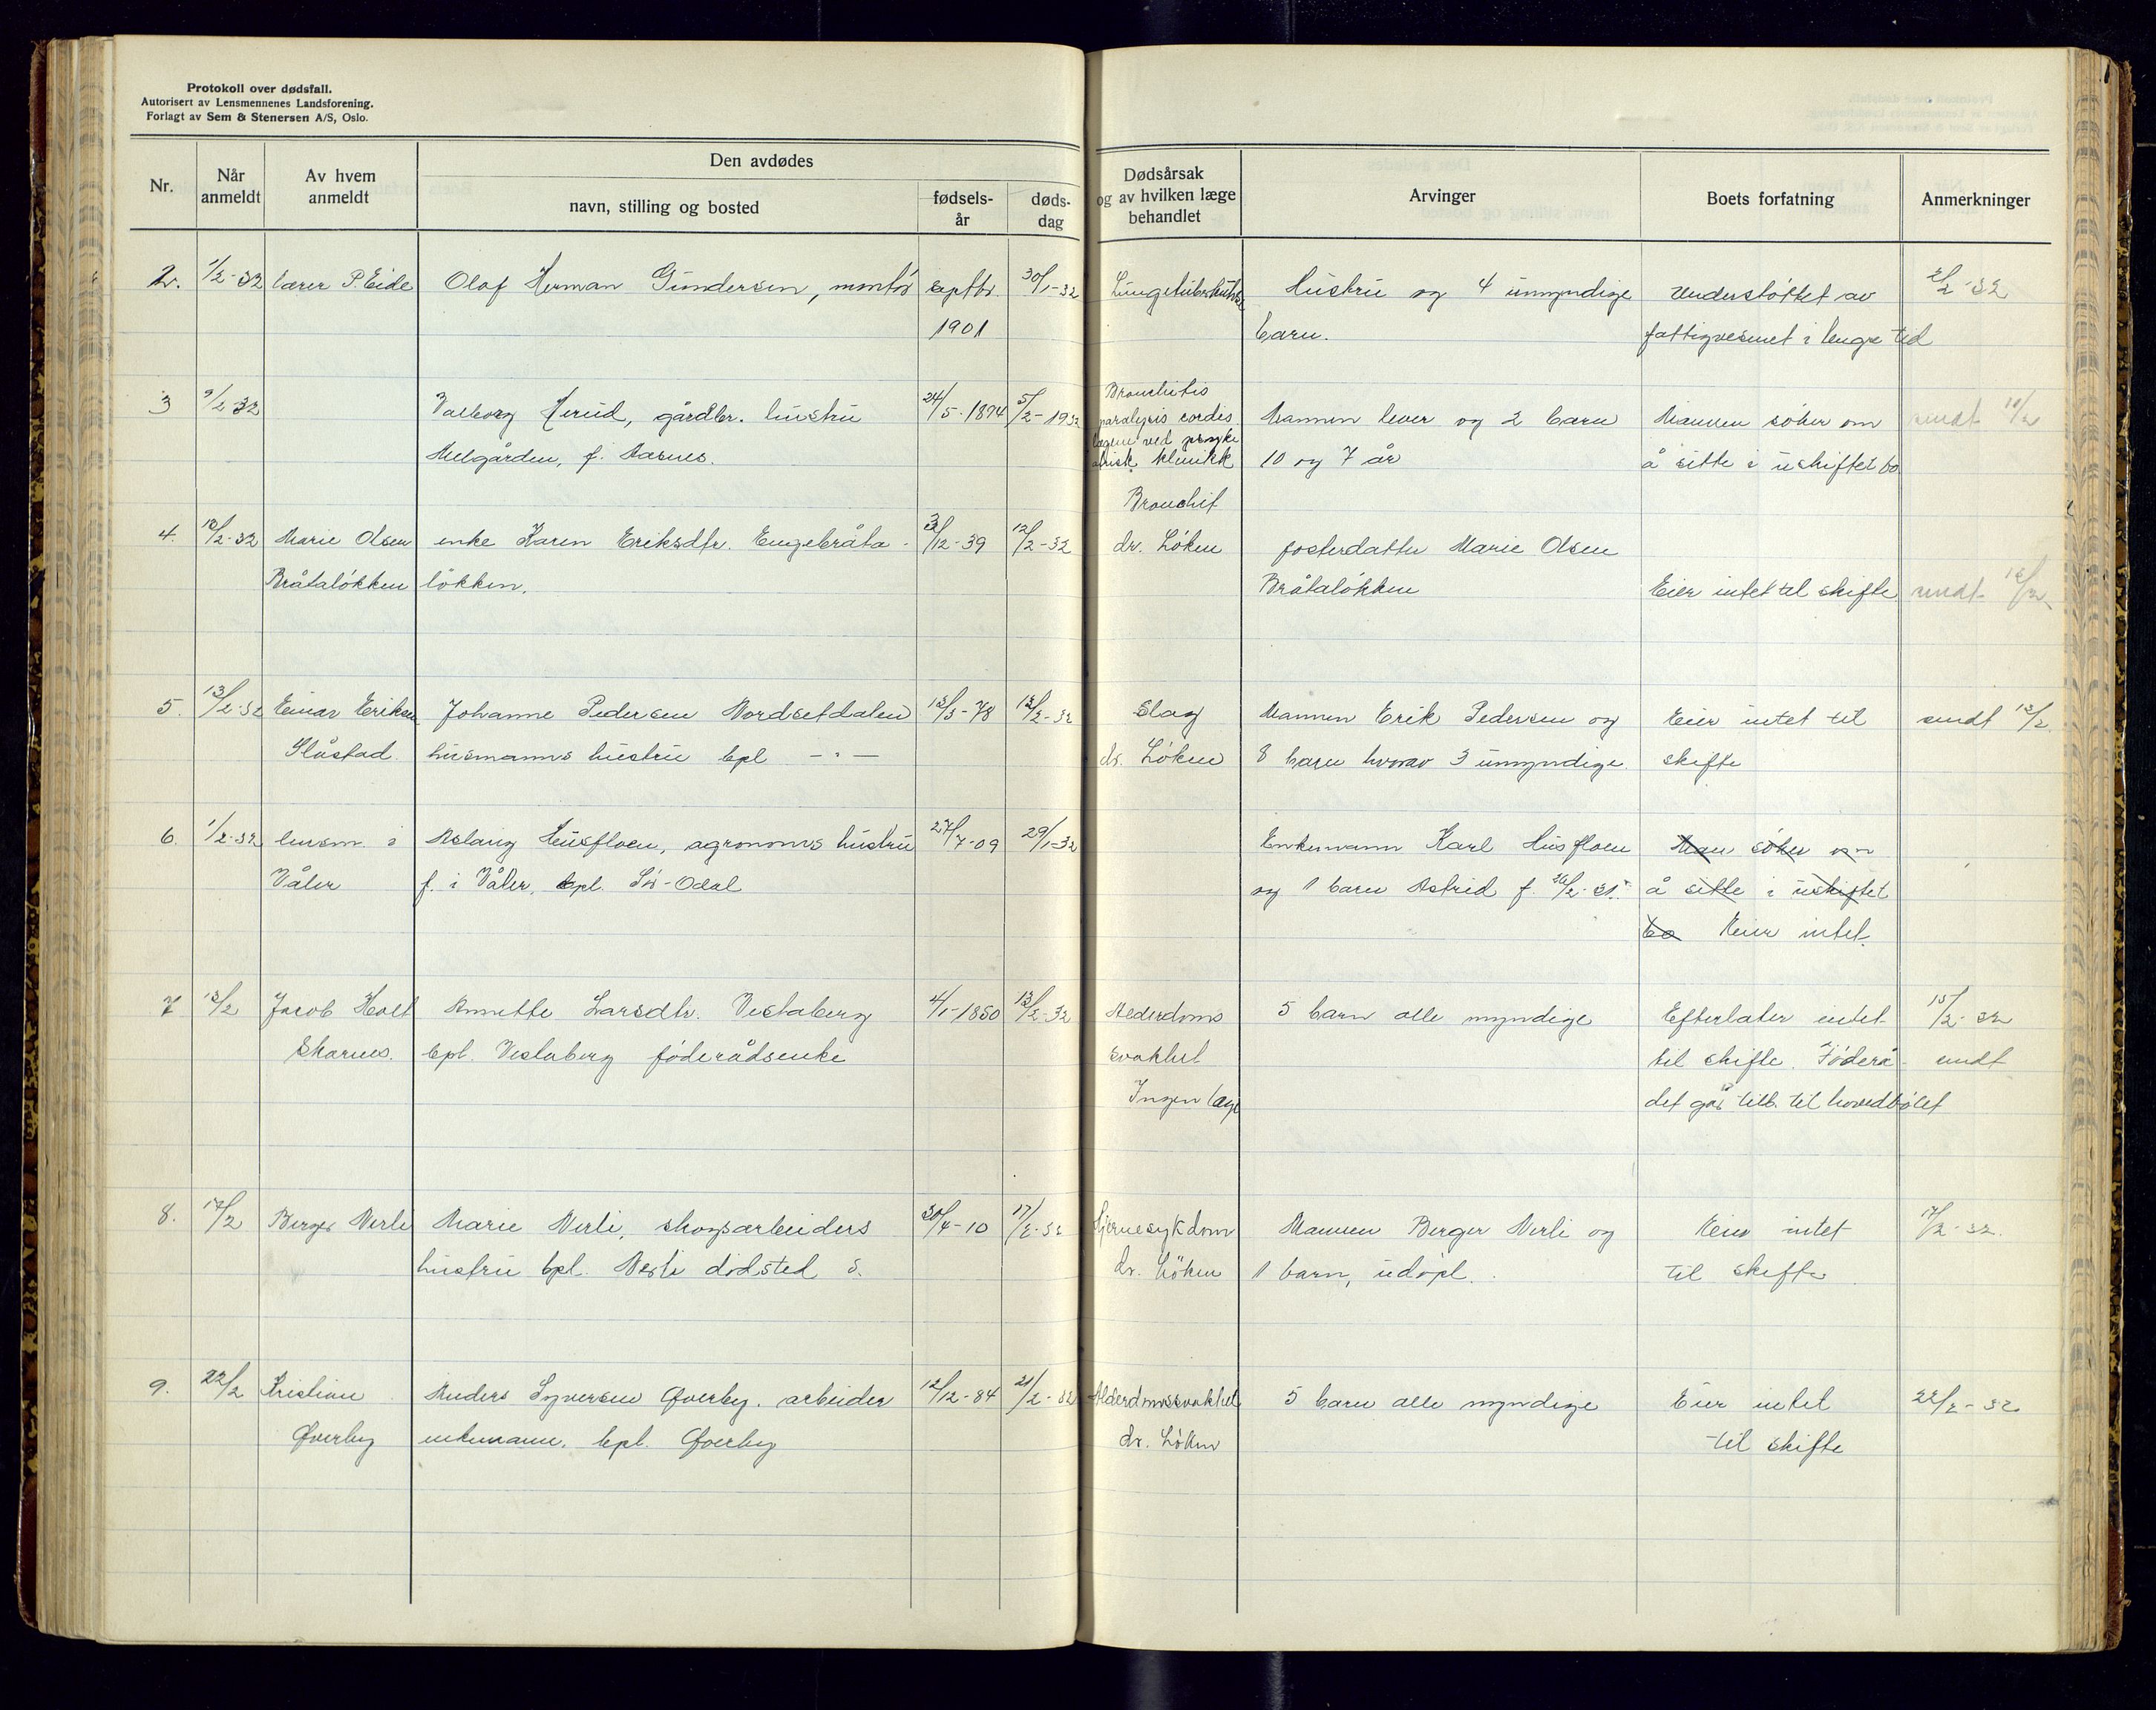 Protokoll over dødsfall.
Autorisert av Lensmennenes Landsforening.
Forlagt av Sem & Stenersen A/S, Oslo.
Nr.
Når anmeldt
Av hvem anmeldt
Den avdødes
navn, stilling og bosted
fødsels-år
døds-dag
Dødsårsak og av hvilken læge behandlet
Arvinger
Boets forfatning
Anmerkninger
2. 1/2-32 lærer P. Eide Olaf Herman Gundersen, montør septbr. 30/1-32 Lungetuberkulose Hustru og 4 umyndige Understøttet av 2/2-32
1901 barn. fattigvesenet i lengre tid
Bronchitis
3 9/2 32 Valborg Herud, gårdbr. hustru 24/5-1874 5/2-1932 paralysis cordis Mannen lever og 2 barn Mannen søker om sendt 10/2
lægen ved psyki
Melgården, f. Aasnes. atrisk klinikk 10 og 7 år å sitte i uskiftet bo
Bronchit
4. 12/2-32 Marie Olsen enke Karen Eriksdtr. Engebråta- 3/12-39 12/2-32 dr. Løken fosterdatter Marie Olsen
Bråtaløkken løkken. Bråtaløkken Eier intet til skifte sendt 12/2
5. 13/2-32 Einar Eriksen Johanne Pedersen Nordsetdalen 15/3-78 12/2-32 Slag Mannen Erik Pedersen og Eier intet til sendt 13/2
Slåstad husmanns hustru bpl —"— dr. Løken 8 barn hvorav 3 umyndige. skifte
6. 1/2-32 lensm. i Aslaug Husfloen, agronoms hustru 27/7-09 29/1-32 Enkemann Karl Husfloen Man søker om
Våler f. i Våler, bpl. Sør-Odal og 1 barn Astrid f. 26/2-31. å sitte i uskiftet
bo Eier intet.
7 13/2 Jacob Holt Annette Larsdtr. Vestaberg 4/1-1850 13/2-32 Alderdoms 5 barn alle myndige Efterlater intet 15/2-32
Skarnes. bpl. Vestaberg føderådsenke svakhet til skifte. Føderå- sendt
Ingen læge det går tilb. til hovedbølet
8. 17/2 Berger Nerli Marie Nerli, skogsarbeiders 30/4-10 17/2-32 Hjernesykdom Mannen Berger Nerli og Eier intet 17/2-32.
hustru bpl. Nerli dødsted s. dr. Løken 1 barn, udøpt. til skifte
9. 22/2 Kristian Anders Syversen Overby. arbeider 12/12-84 21/2-32 Alderdomssvakhet 5 barn alle myndige Eier intet 22/2-32
Overby enkemann. bpl. Overby dr. Løken til skifte